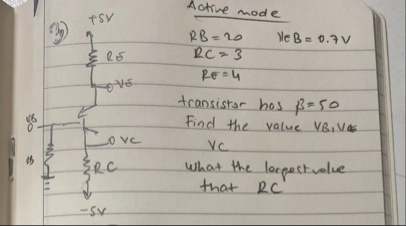 Active mode
3)
+5V
RB = 20
VEB = 0.7V
RE
RC = 3
RE = 4
VE
transistor has β = 50
VB
Find the value VB, VE
VC
VC
RB
RC
What the largest value
that RC
-5V